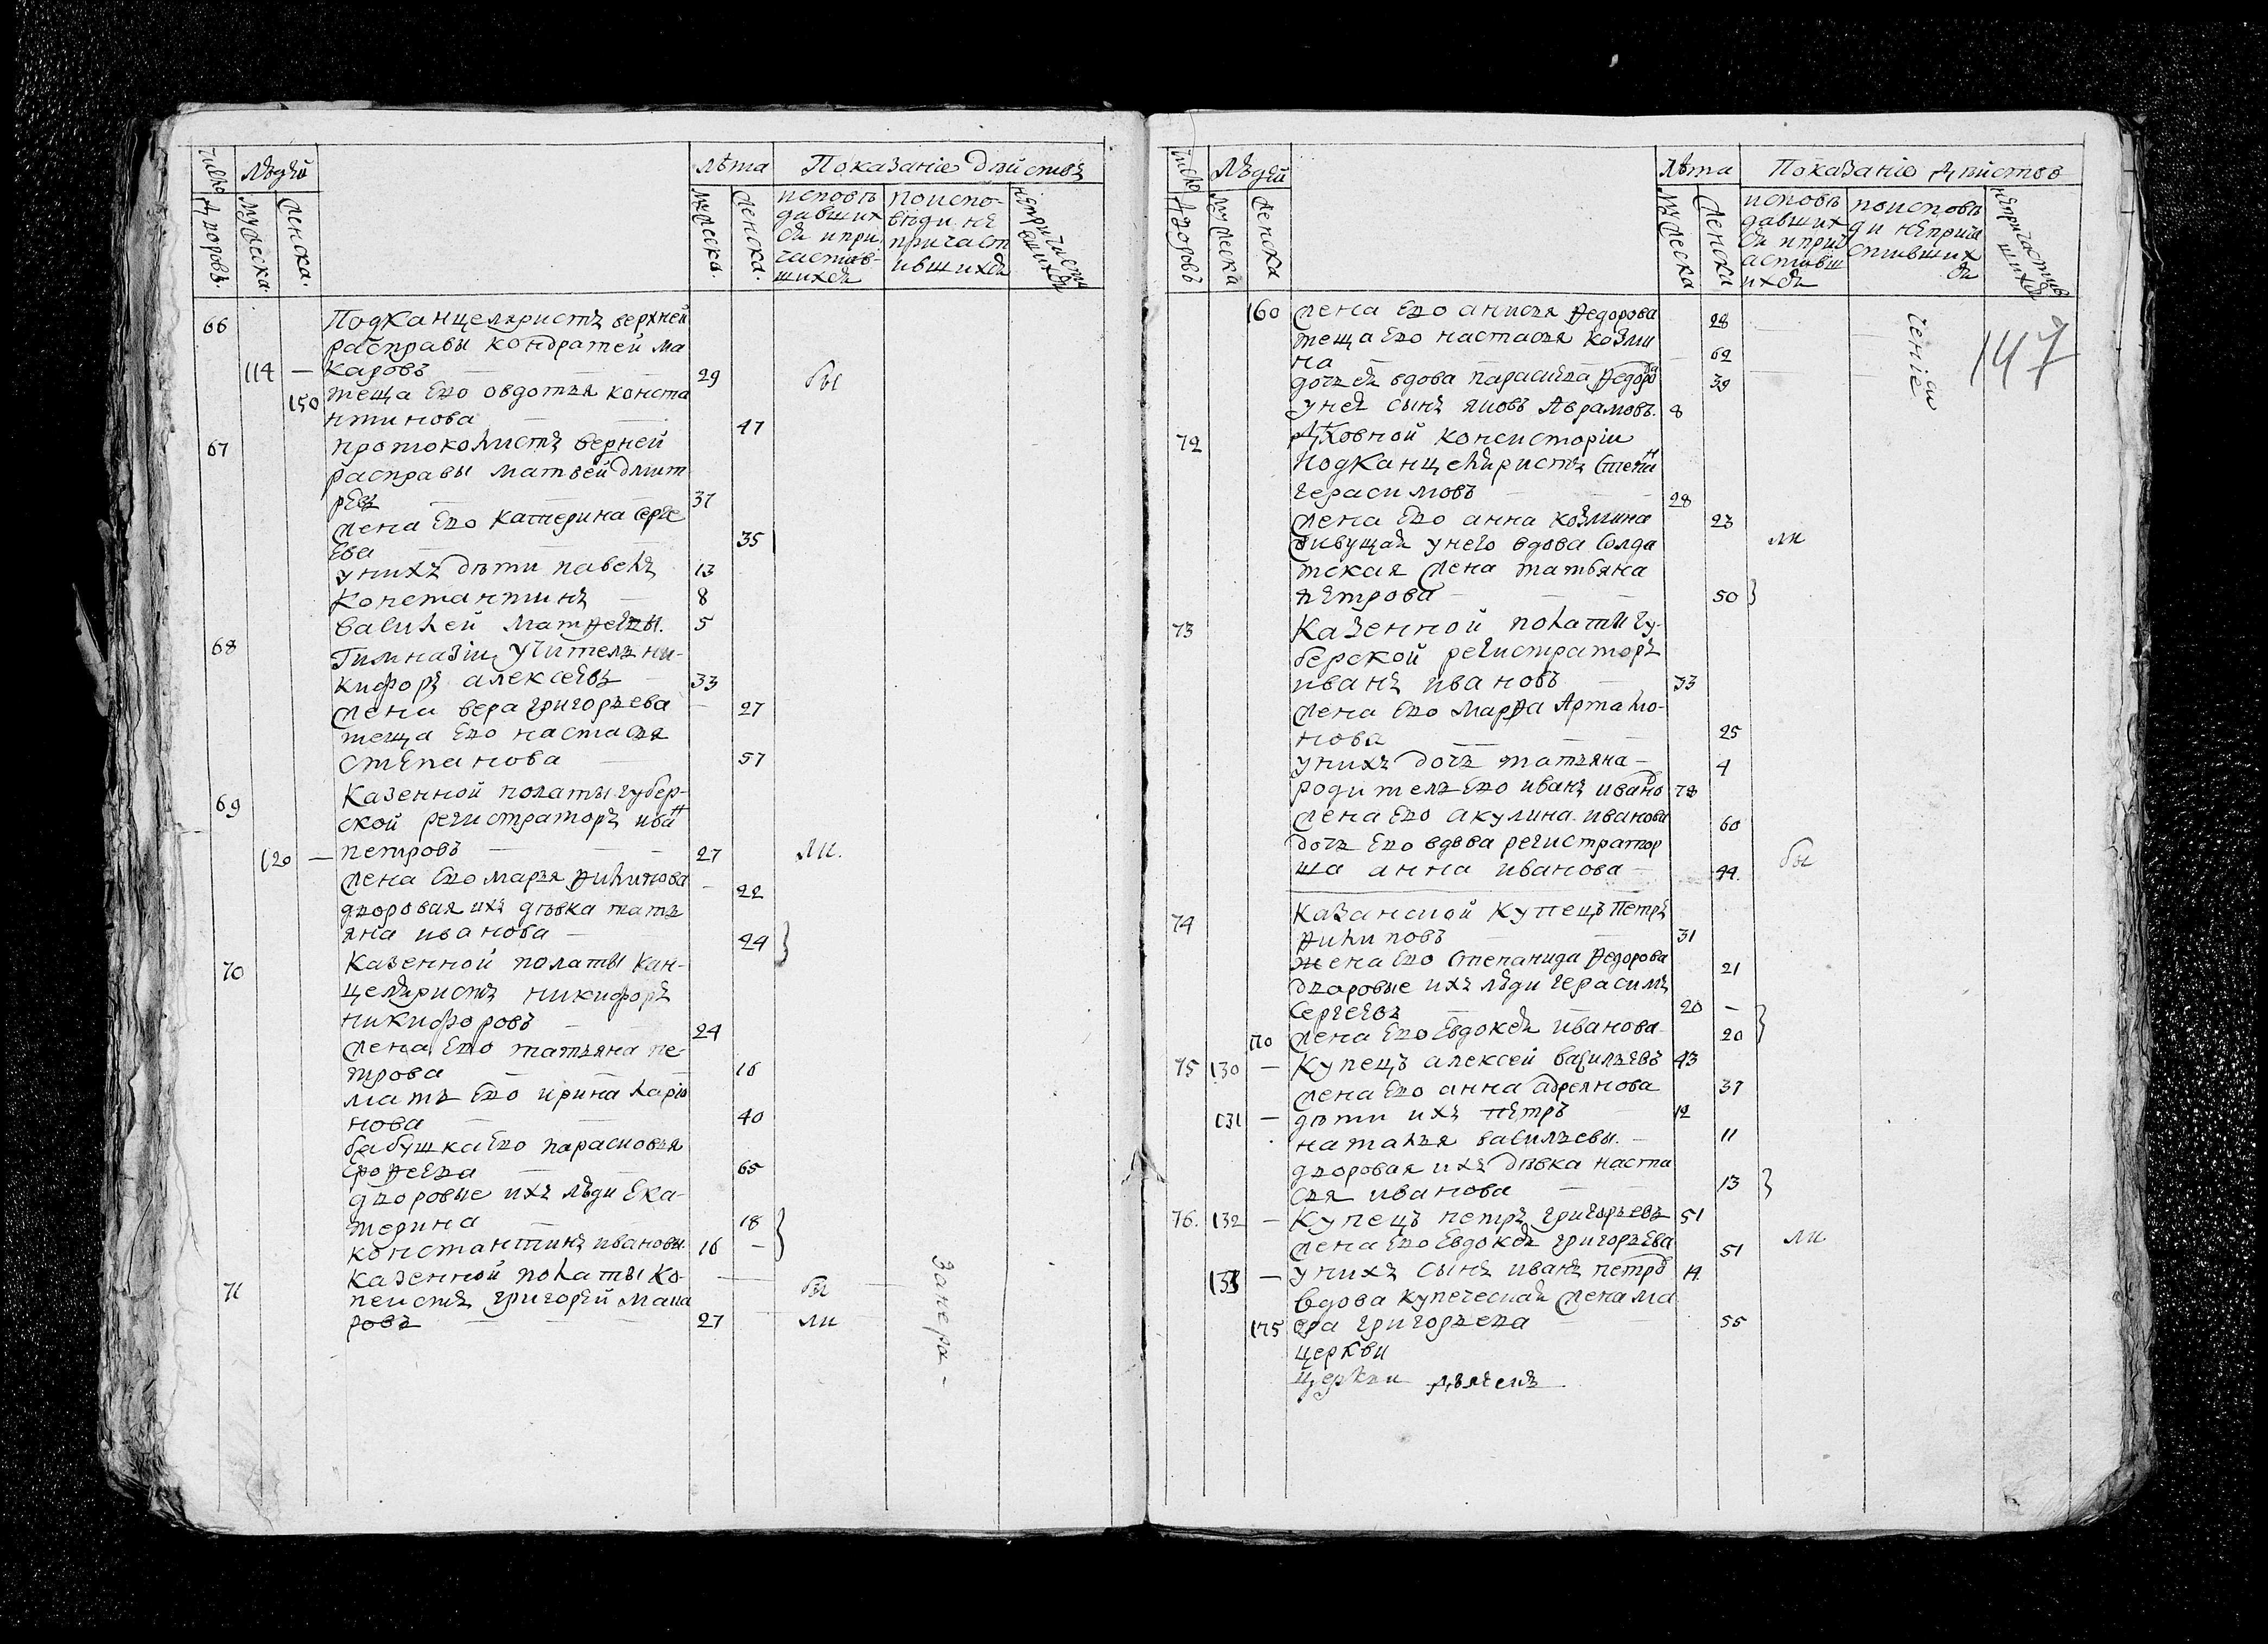 Число дворовъ.
Людей
мужеска.
женска.
лѣта
мужеска.
женска.
Показаніе дѣйствъ
исповѣ
давших
ся и при
частив-
шихся
по испо-
вѣди не
причаст
ившихся
66
Подканцеляристъ верхней
расправы кондратей ма
114 — каровъ — 29 бы
150 теща Ево овдотья конста
нтинова — 47
67 протоколистъ верней
расправы матвей Дмит
рЕвъ — 37
жена Ево катерина серге
Ева — 35
у нихъ дѣти павелъ 13
константинъ — 8
василей матѳеевы. 5
68 Гимназіи учитель ни-
кифоръ алексеЕвъ — 33
жена вера григорьева — 27
теща Ево настасья
стЕпанова — 57
69 Казенной полаты губер-
ской регистраторъ иван
120 — петровъ — 27 ли.
жена Ево марья ѳилипова — 22
дворовая ихъ дѣвка тать
яна иванова — 24 }
70 Казенной полаты кан-
целяристъ никифоръ
никифоровъ — 24
жена Ево татьяна пе-
трова — 16
мать Ево ирина ларио
нова — 40
бабушка Ево парасковья
ЕроѳеЕва — 65
дворовые ихъ люди Ека-
терина — 18 }
константинъ ивановы. 16 —
71 казенной полаты ко- — бы
пеистъ григорей мака
ровъ — 27 ли
Занера-
Число дворовъ
Людей
мужеска
женска
лѣта
мужеска
женска
Показаніе дѣйствъ
исповѣ
давших
ся и прич
астивш
ихся
по исповѣ
ди неприча
стивших
ся
непричастив
шихся
чениа
147
160 жена Ево анисья ѳедорова 28
теща Ево настасья козми
на — 62
дочь ея вдова парасковья ѳедоро 39
у неЯ сынъ яковъ Аврамовъ. 8
72 Духовной консисторіи
подканцеляристъ Степан
герасимовъ — 28
жена Ево анна козмина 23
живущая у него вдова солда ли
тская жена татьяна
пЕтрова — 50 }
73 Казенной полаты гу-
берской регистраторъ
иванъ ивановъ — 33
жена Ево марѳа Артамо-
нова — 25
у нихъ дочь татьяна — 4
родитель Ево иванъ иванов 78
жена Ево акулина иванова 60
дочь Ево вдова регистратор
ша анна иванова — 44. бы
74 Казанской купецъ Петръ
ѳилиповъ — 31
жена Ево Степанида ѳедорова 21
дворовые ихъ люди герасимъ
сергеЕвъ — 20 —
170 жена Ево Евдокея иванова. 20 }
75 130 — Купецъ алексей васильЕвъ 43
жена Ево анна адреянова 37
131 — дѣти ихъ пЕтръ — 12
наталья васильевы. — 11
дворовая ихъ дѣвка наста
сья иванова — 13 }
76. 132 — Купецъ петръ григорьевъ 51
жена Ево Евдокея григорьЕва 51 ли
133 — у нихъ сынъ иванъ петров 14.
вдова купеческая жена ма
175 ѳра григорьева — 55
церкви
церкви